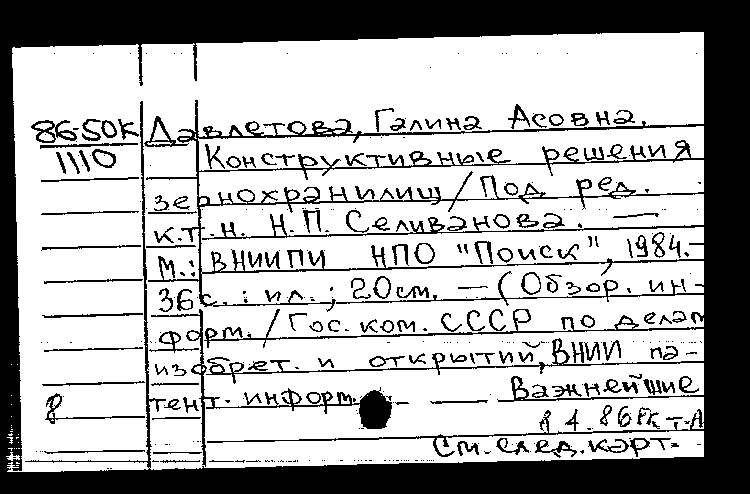 86-50К Давлетова, Галина Асовна.
1110 Конструктивные решения
зернохранилищ / Под ред.
к.т.н. Н.П. Селиванова. —
М.: ВНИИПИ НПО "Поиск", 1984.-
36 с. : ил. ; 20 см. — (Обзор. ин-
форм. / Гос. ком. СССР по делам
изобрет. и открытий, ВНИИ па-
8 тент. информ. — Важнейшие
См. след. карт.